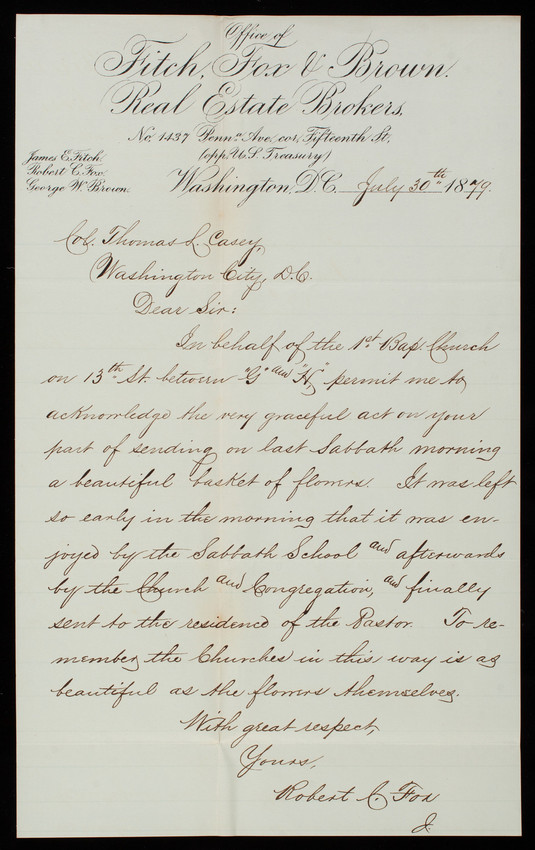 Office of
Fitch, Fox & Brown.
Real Estate Brokers,
No. 1437 Penna. Ave. cor. Fifteenth St.
(opp. U.S. Treasury)
James E. Fitch.
Robert C. Fox.
George W. Brown.
Washington, D.C. July 30th 1879.
Col. Thomas L. Casey,
Washington City, D.C.
Dear Sir:
In behalf of the 1st Bap. Church
on 13th St. between "G" and "H," permit me to
acknowledge the very graceful act on your
part of sending on last Sabbath morning
a beautiful basket of flowers. It was left
so early in the morning that it was en-
joyed by the Sabbath School and afterwards
by the Church and Congregation, and finally
sent to the residence of the Pastor. To re-
member the Churches in this way is as
beautiful as the flowers themselves.
With great respect,
Yours,
Robert C. Fox